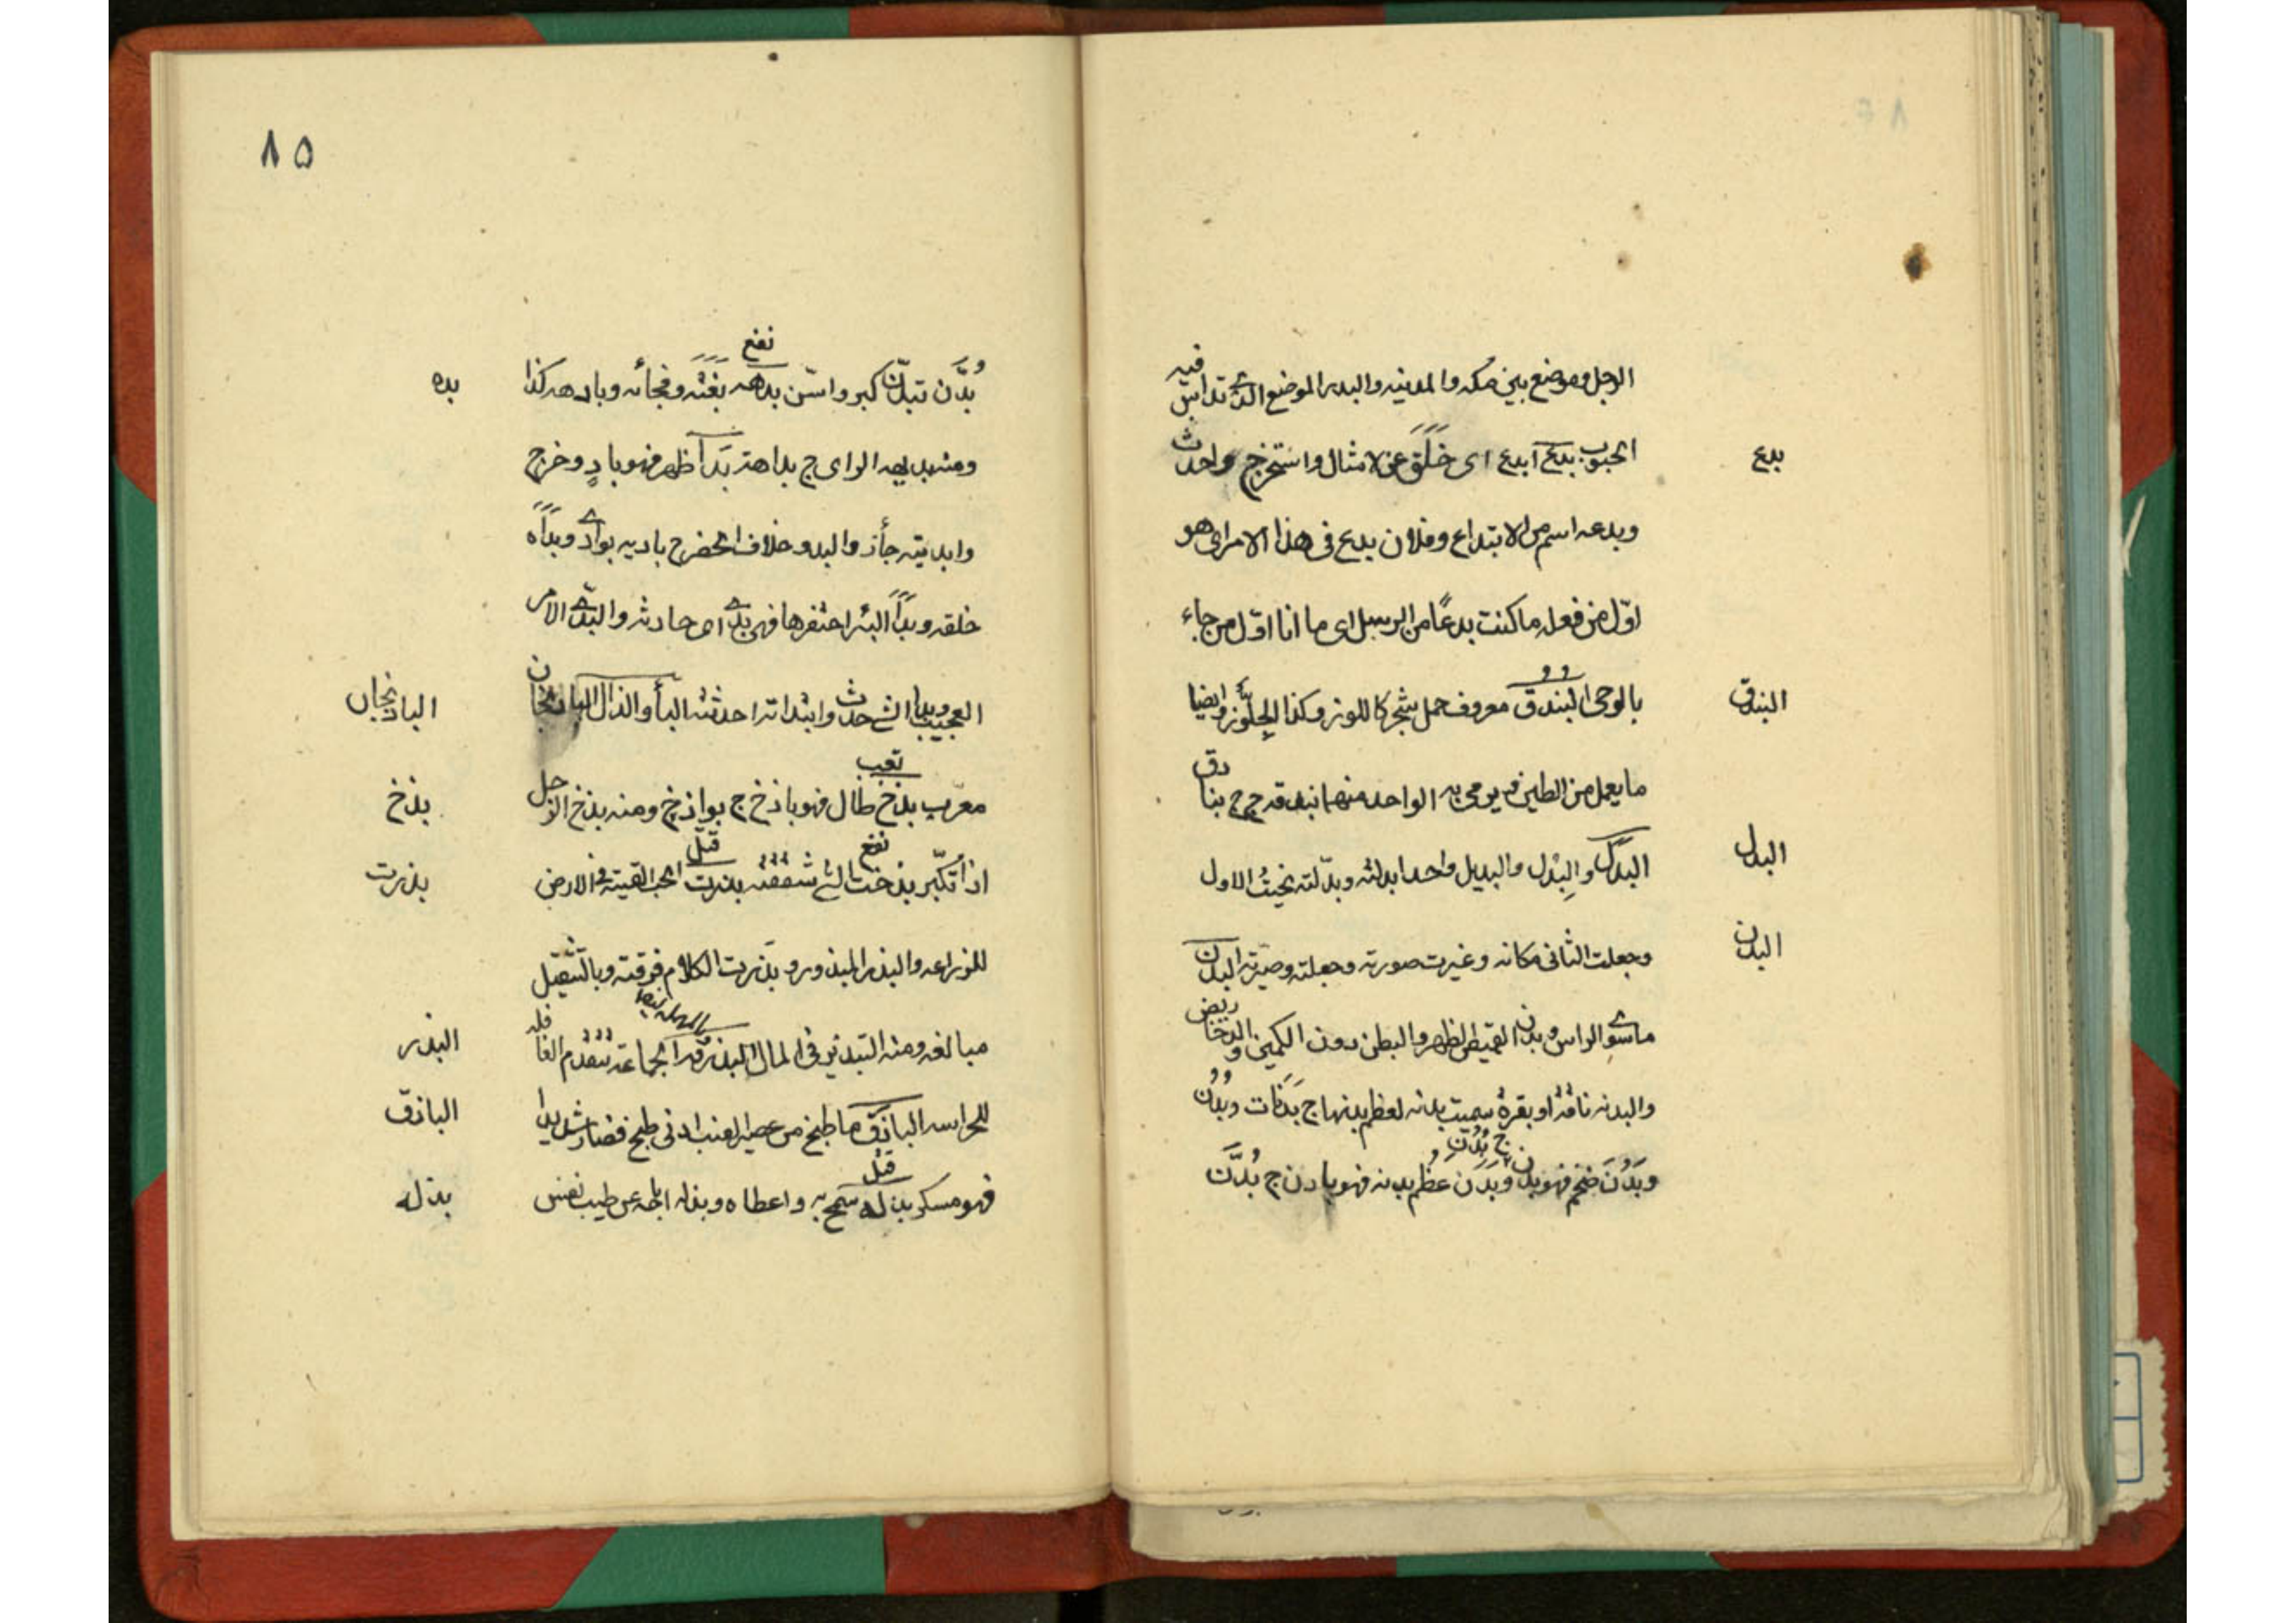 الرجل وموضع بين مكه والمدينه والبدر الموضع الذي تداس فيه
بدع
الحبوب بدع ابدع اى خَلَقَ عن لا مثال واستخرج واحدث
وبدعه اسم من الابتداع وفلان بدع فى هذا الامر اى هو
اوّل من فعله ما كنت بدعًا من الرسل اى ما انا اوّل من جاء
البندق
بالوحى البندق معروف حمل شجر كاللوز وكذا الجلّوز وايضا
ما يعمل من الطين فيرمى به الواحد منهما بندقه ج ج بنادق
البدل
البَدَل والبِدْل والبديل واحد ابدلته وبدّلته نحيتُ الاول
البدن
وجعلت الثانى مكانه وغيرت صورته وجعلته وصيّرته البدن
ما سوى الراس وبدن القميص الظهر والبطن دون الكمين و الدخاريض
والبدنه ناقة او بقرة سميت بدنه لعظم بدنها ج بَدَنات وبُدُن
وبَدُنَ ضخم فهو بدن ج بُدُن وبَدَنَ عَظُم بدنه فهو بادن ج بُدَّن
٨٥
بُدَّن تبدّن كبر واسّن
نفع
بدهه بَغَتَه وفجأه وبادهه كذا
بده
ومنه بديهه الراى ج بداهة بَدَا ظهر فهو بادٍ وخرج
وابديته جأز والبدو خلاف الحضر ج باديه بوادى وبَدَأَه
خلقه وبدأ البئر احتفرها فهى بدى اى حادثه والبدى الامر
العجيب وبدا الشى حدث وابتداته احدثته البأ والذال الباذنجان
الباذنجان
تعب
معرّب بذخ طال فهو باذخ ج بواذخ ومنه بذخ الرجل
بذخ
نفع
قتل
اذا تكبّر بذخت الشى شققته بذرت الحب القيته فى الارض
بذرت
للزراعه والبذر المبذور وبذرت الكلام فرقته وبالتثقيل
مبالغه ومنه التبذير فى المال البذرقه الجماعة تتقدم القافله
البذر
للحراسه الباذق ما طبخ من عصير العنب ادنى طبخ فصار شديدا
الباذق
قتل
فهو مسكر بذله سمح به واعطاه وبذله اباحه عن طيب نفس
بذله